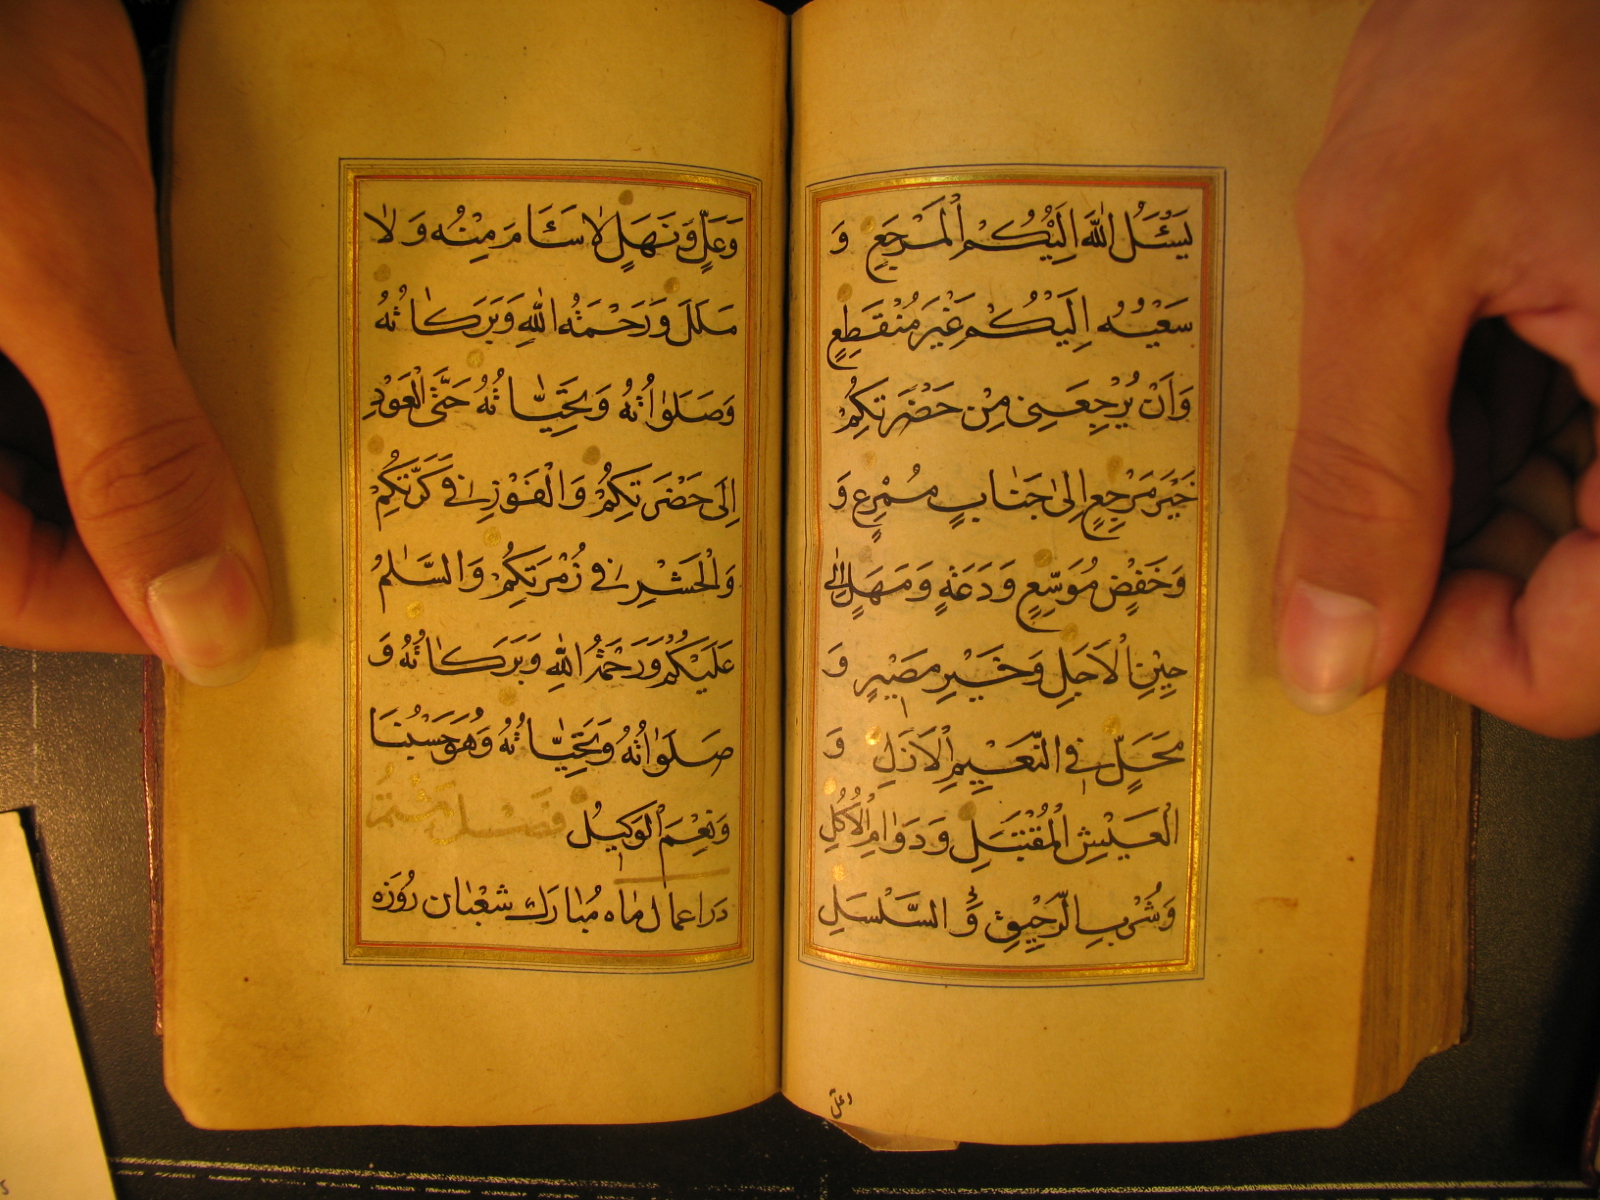 يَسْئَلُ اللّٰهَ اِلَيْكُمْ الْمَرْجَعِ وَ
سَعْيُهُ اِلَيْكُمْ غَيْرَ مُنْقَطِعٍ
وَاَنْ يُرْجِعَنِي مِنْ حَضْرَتِكُمْ
خَيْرَ مَرْجِعٍ اِلىٰ جَنٰابٍ مُمْرِعٍ وَ
وَخَفْضٍ مُوَسَّعٍ وَدَعَةٍ وَمَهَلٍ اِلىٰ
حِيْنِ الْاَجَلِ وَخَيْرِ مَصِيْرٍ وَ
مَحَلٍّ فِي النَّعِيْمِ الْاَزَلِ وَ
الْعَيْشِ الْمُقْتَبَلِ وَدَوٰامِ الْاُكُلِ
وَشُرْبِ الرَّحِيْقِ وَ السَّلْسَلِ
وعل
وَعَلٍّ وَنَهَلٍ لاٰ سَئَامَ مِنْهُ وَلاٰ
مَلَلَ وَرَحْمَتُهُ اللّٰهِ وَبَرَكٰاتُهُ
وَصَلَوٰاتُهُ وَتَحِيّٰاتُهُ حَتَّى الْعَوْدِ
اِلَى حَضْرَتِكُمْ وَالْفَوْزِ فِي كَرَّتِكُمْ
وَالْحَشْرِ فِي زُمْرَتِكُمْ وَالسَّلٰمُ
عَلَيْكُمْ وَرَحْمَةُ اللّٰهِ وَبَرَكٰاتُهُ وَ
صَلَوٰاتُهُ وَتَحِيّٰاتُهُ وَهُوَ حَسْبُنَا
وَنِعْمَ الْوَكِيْلُ فَصْل هَشْتُم
دَر اعمال مٰاه مُبٰارَك شَعْبٰان رُوزَه